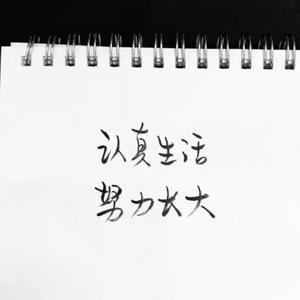 认真生活
努力长大